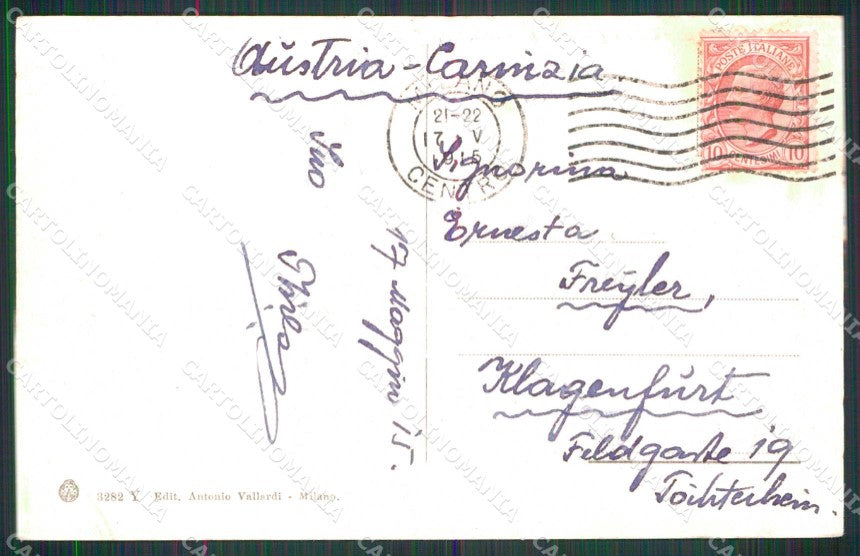 Austria-Carinzia
MILANO
21-22
17 V
1915
CENTRO
POSTE ITALIANE
10 CENTESIMI 10
Signorina
Ernesta
Freyler,
Klagenfürt
Feldgasse 19
Töchterheim.
Suo
17 Maggio 15.
3282 Y Edit. Antonio Vallardi - Milano.
CARTOLINOMANIA